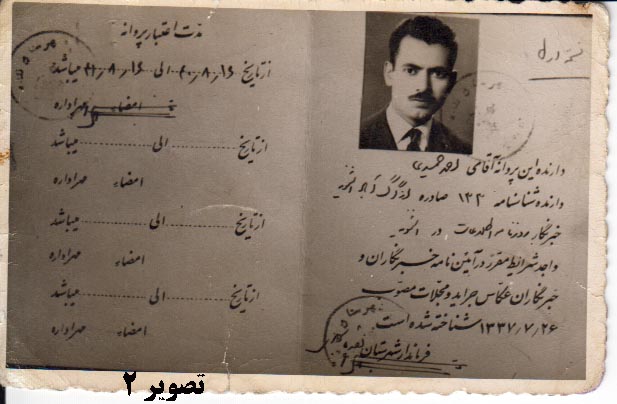 دارنده این پروانه آقای احمد حمیدی
دارنده شناسنامه ۱۳۲ صادره
خبرنگار روزنامه اطلاعات در
واجد شرائط مقرر در آئین نامه خبرنگاران و
خبرنگاران عکاس جراید و مجلات مصوب
۱۳۳۷٫۷٫۲۶ شناخته شده است
فرماندار شهرستان
مدت اعتبار پروانه
از تاریخ ۴۰٫۸٫۱۶ الی ۴۱٫۸٫۱۶ میباشد
امضاء مهر اداره
از تاریخ ............ الی ............ میباشد
امضاء مهر اداره
از تاریخ ............ الی ............ میباشد
امضاء مهر اداره
از تاریخ ............ الی ............ میباشد
امضاء مهر اداره
تصویر ۲